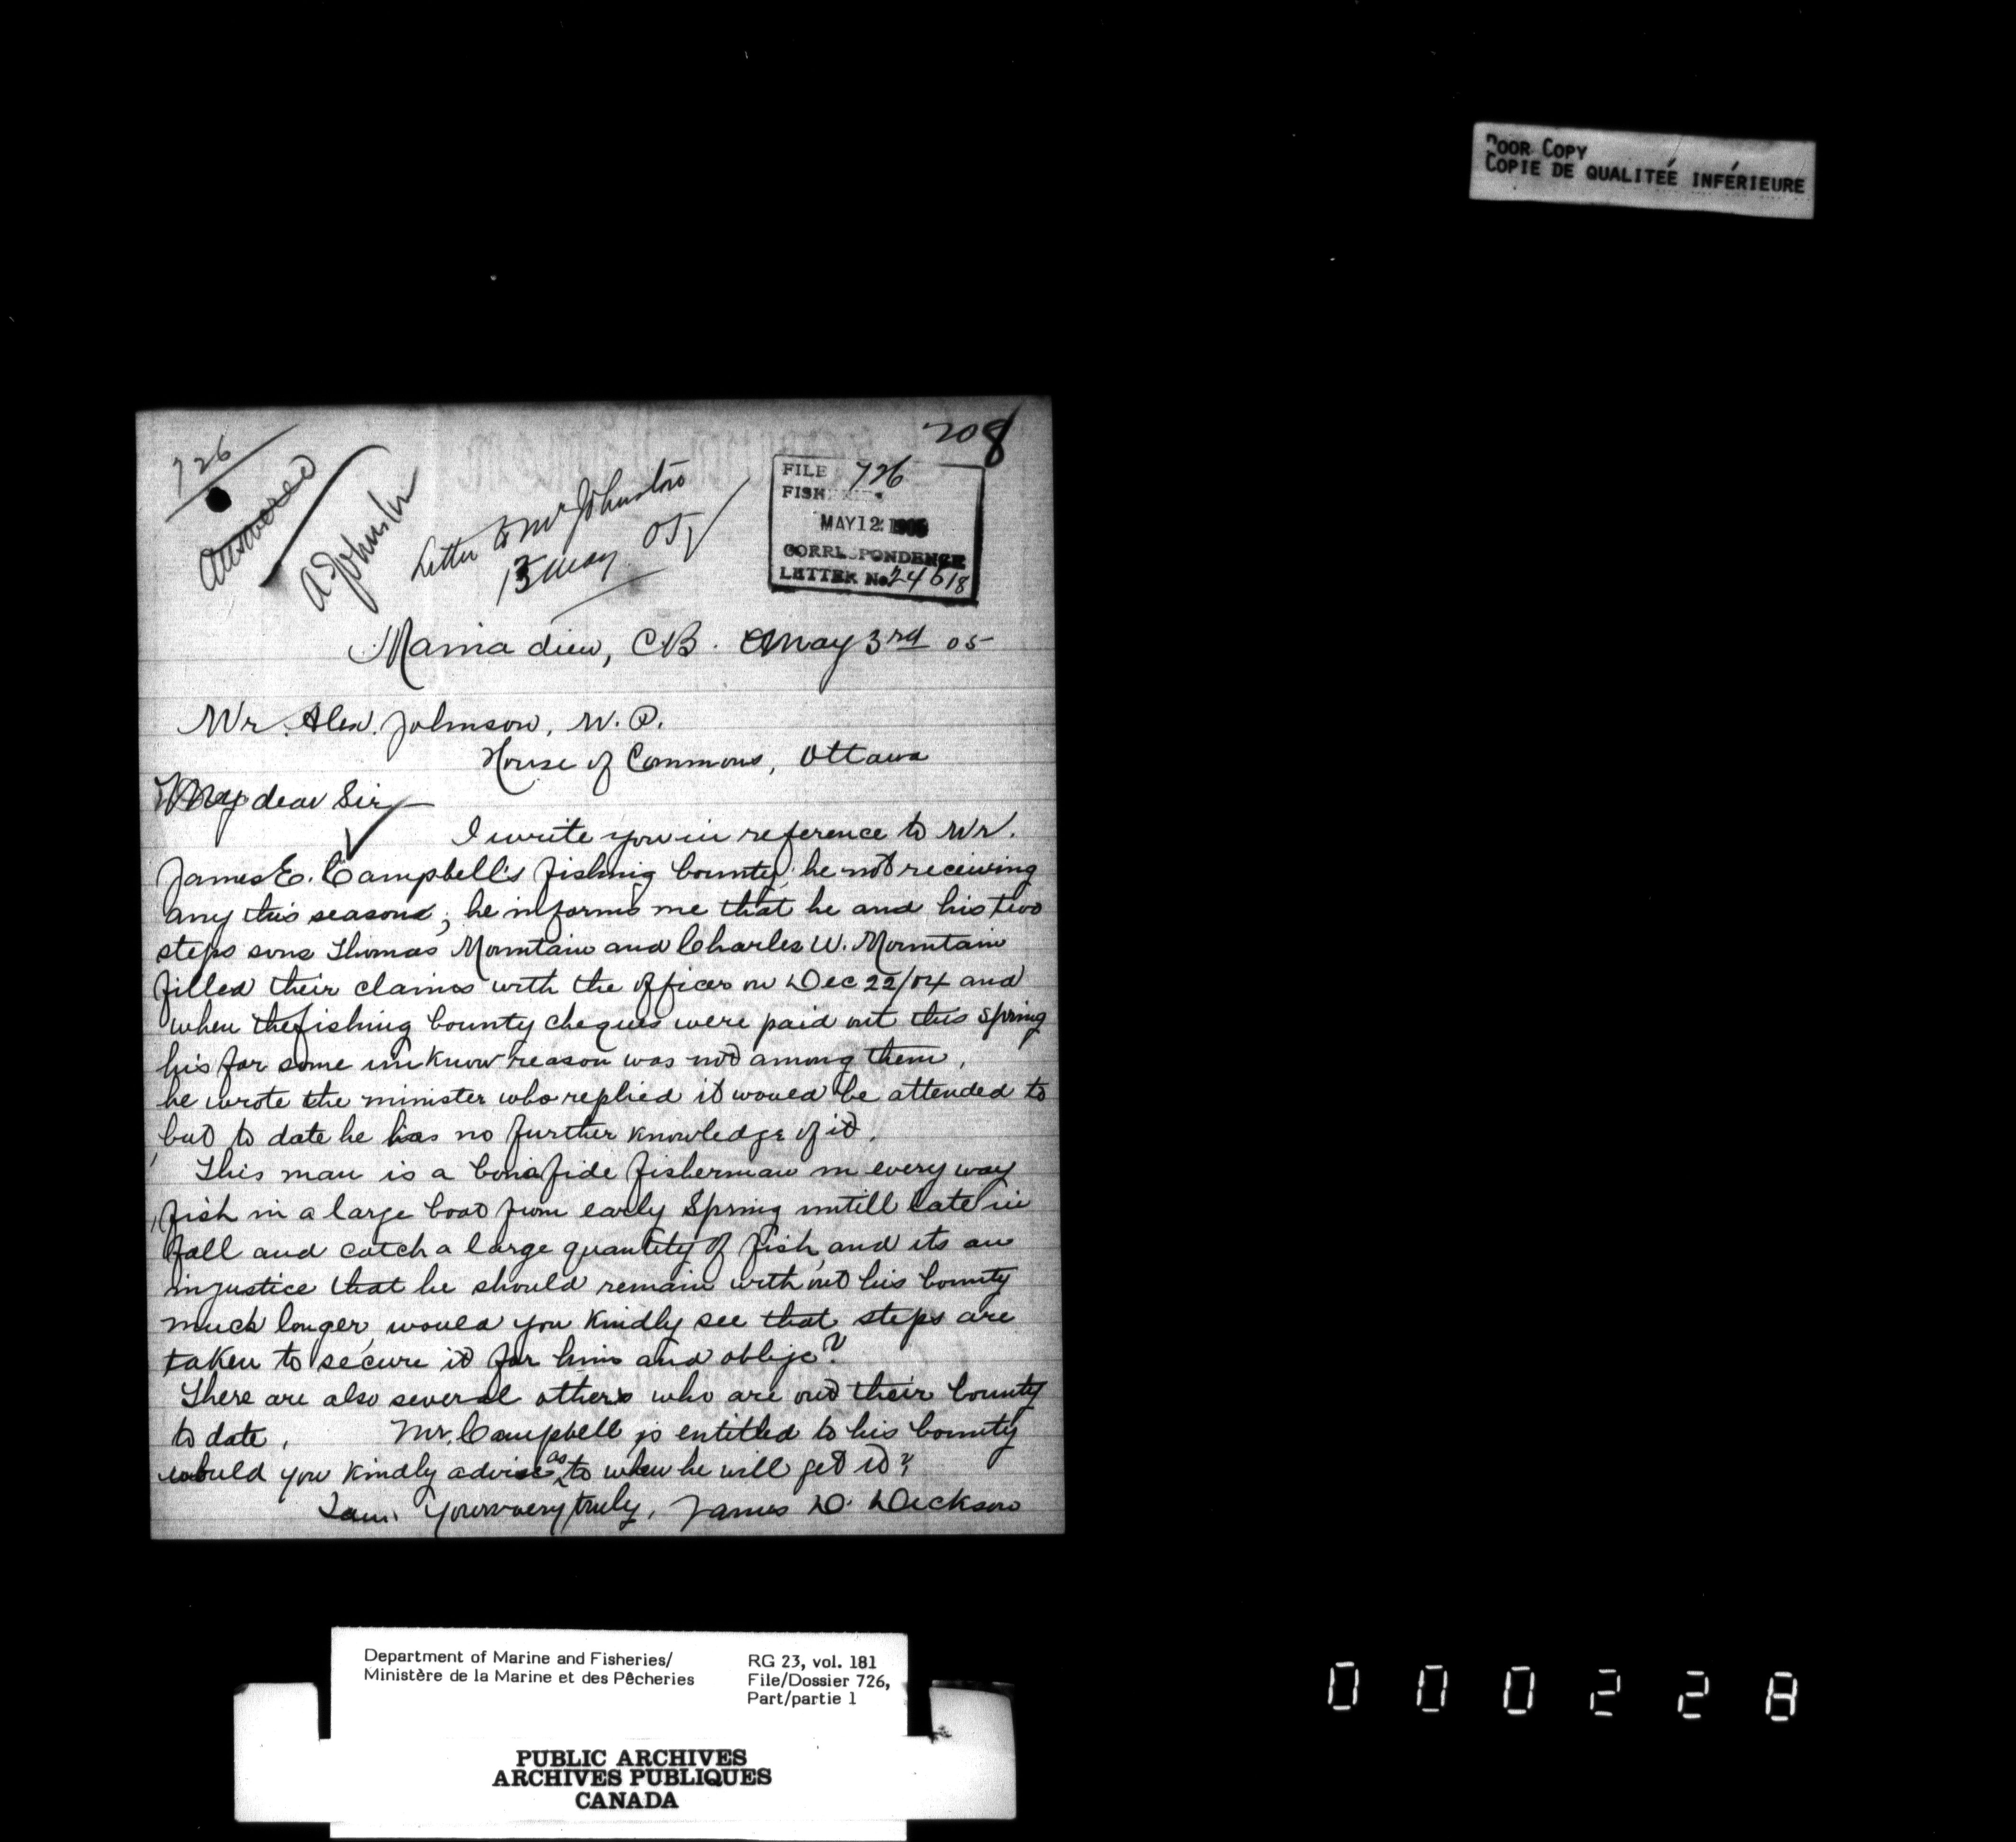 POOR COPY
COPIE DE QUALITEÉ INFÉRIEURE
208
726
Answered
A Johnston
Letter to Mr Johnston
15 May 05
FILE 726
FISHERIES
MAY 12 1905
CORRESPONDENCE
LETTER No. 24618
Main a dieu, CB. May 3rd 05
Mr. Alex. Johnson, M.P.
House of Commons, Ottawa
My dear Sir
I write you in reference to Mr.
James E. Campbell's fishing bounty, he not receiving
any this season, he informs me that he and his two
steps sons Thomas Mountain and Charles W. Mountain
filled their claims with the officer on Dec 22/04 and
when the fishing bounty cheques were paid out this spring
his for some unknow reason was not among them,
he wrote the minister who replied it would be attended to
but to date he has no further knowledge of it.
This man is a bonafide fisherman in every way
fish in a large boat from early Spring untill late in
fall and catch a large quantity of fish, and its an
injustice that he should remain without his bounty
much longer, would you kindly see that steps are
taken to secure it for him and oblige?
There are also several others who are out their bounty
to date. Mr. Campbell is entitled to his bounty
would you kindly advise as to when he will get it?
I am. Yours very truly, James D. Dickson
Department of Marine and Fisheries/
Ministère de la Marine et des Pêcheries
RG 23, vol. 181
File/Dossier 726,
Part/partie 1
PUBLIC ARCHIVES
ARCHIVES PUBLIQUES
CANADA
000228